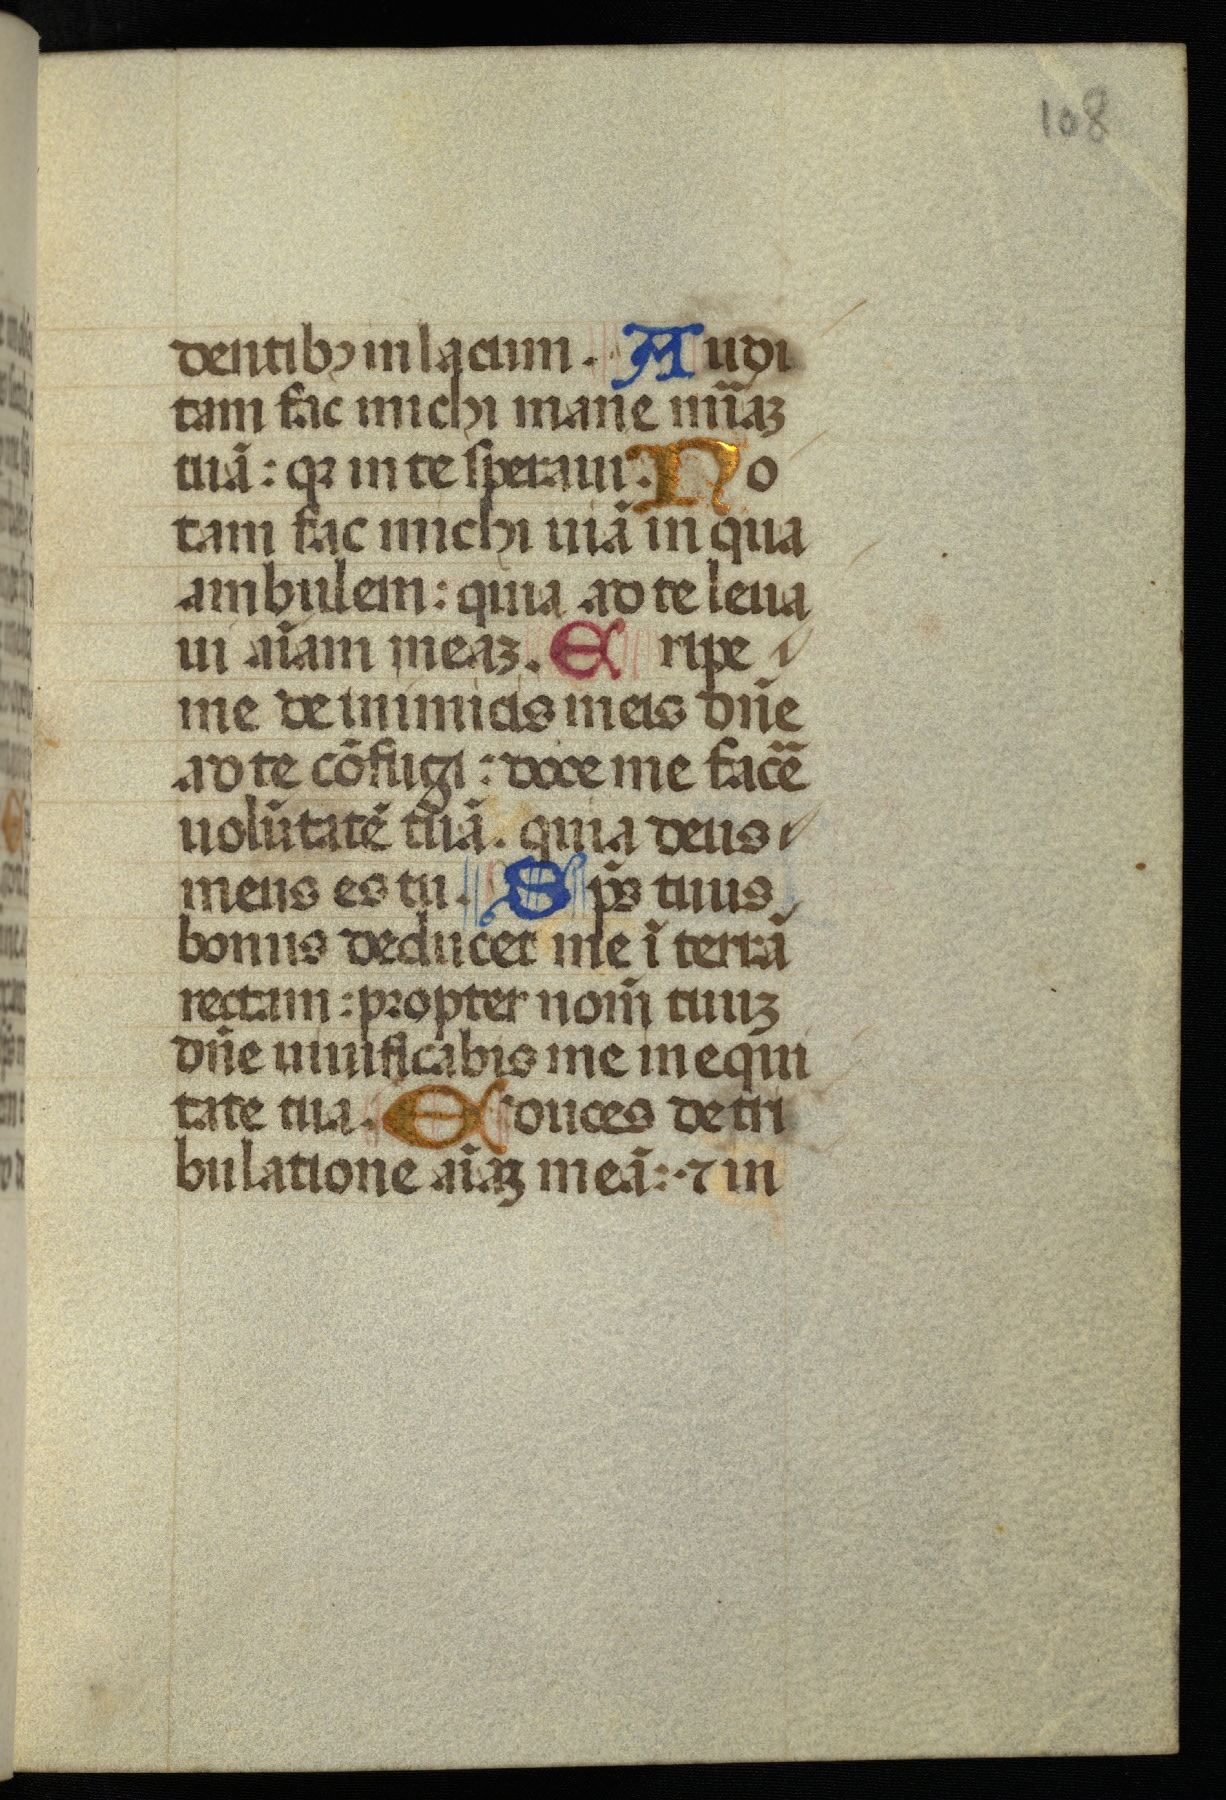 108
dentibꝰ in lacum. Audi
tam fac michi mane mĩaꝫ
tuã: qꝛ in te speraui. No
tam fac michi uiã in qua
ambulem: quia ad te leua
ui aĩam meaꝫ. Eripe
me de inimicis meis dñe
ad te cõfugi: doce me facẽ
uolũtatẽ tuã. quia deus
meus es tu. Sp̃s tuus
bonus deducet me ĩ terrã
rectam: propter nom̃ tuuꝫ
dñe uiuificabis me in equi
tate tua. Educes de tri
bulatione aĩaꝫ meã: ⁊ in